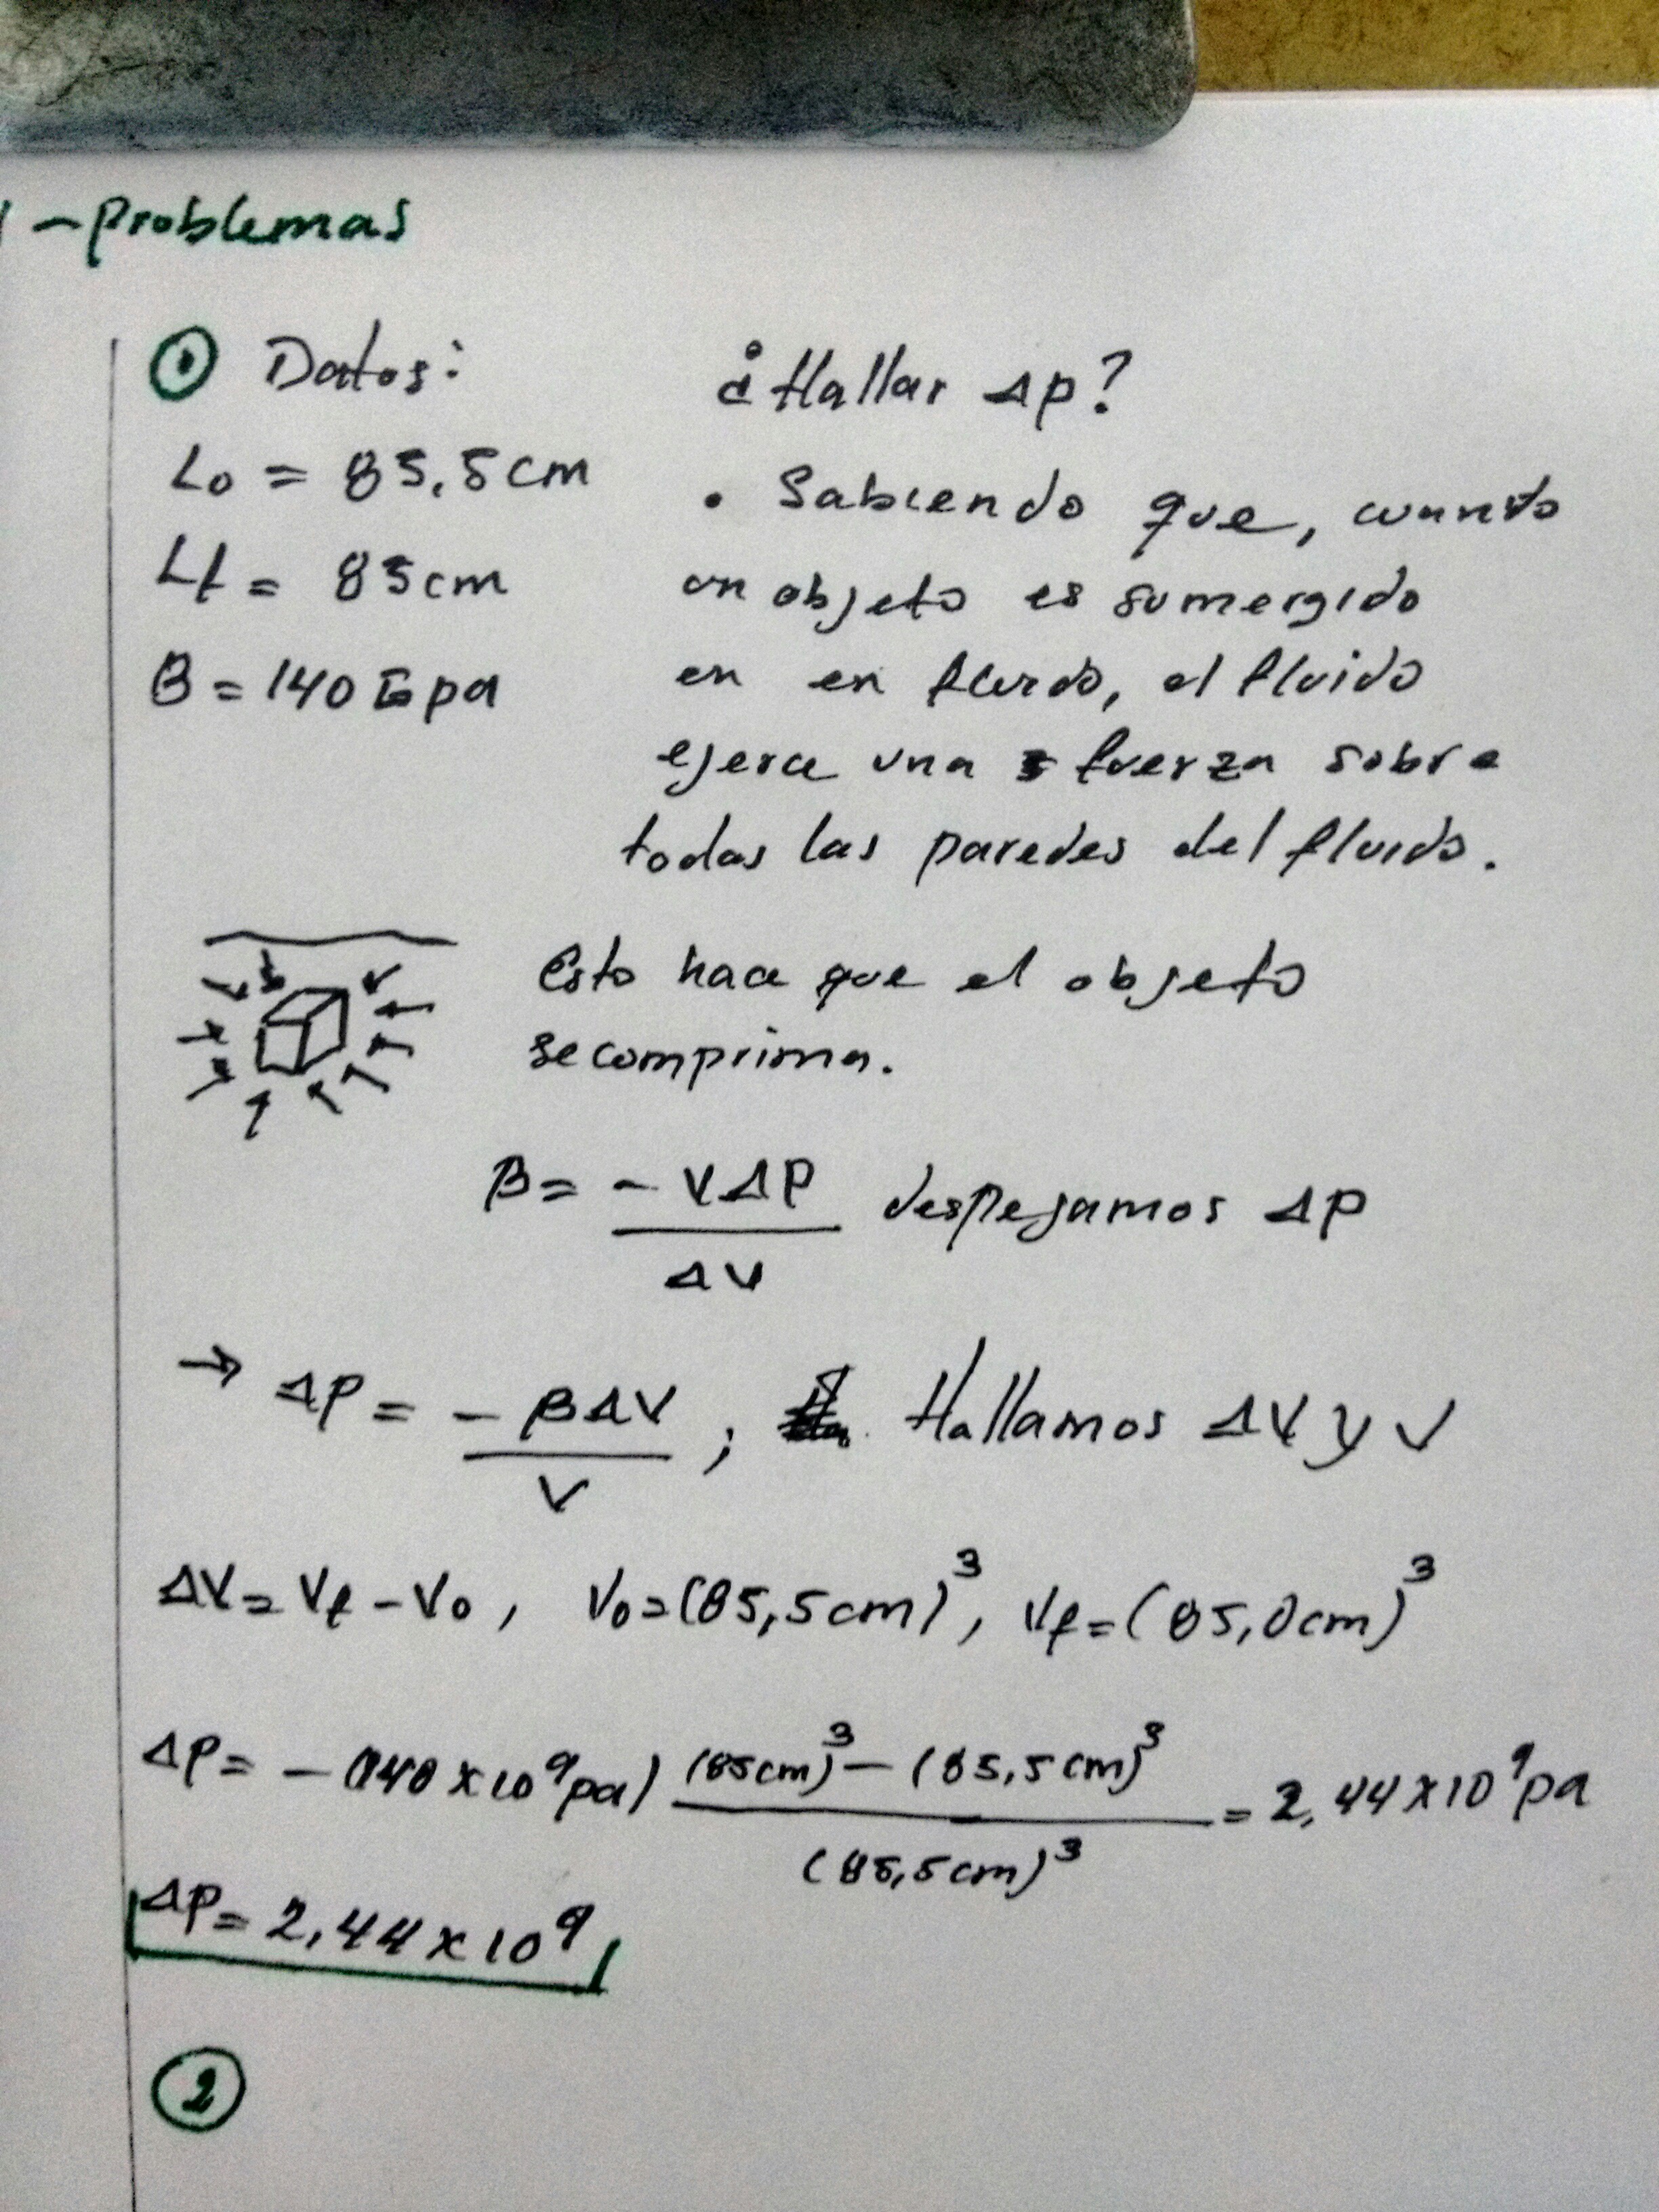 - Problemas
① Datos:
L₀ = 85,5cm
Lf = 85cm
B = 140 Gpa
¿Hallar Δp?
• Sabiendo que, cuando
un objeto es sumergido
en en fluido, el fluido
ejerce una fuerza sobre
todas las paredes del fluido.
Esto hace que el objeto
se comprima.
B = - VΔP / ΔV despejamos ΔP
→ ΔP = - BΔV / V ; Hallamos ΔV y V
ΔV = Vf - V₀, V₀ = (85,5cm)³, Vf = (85,0cm)³
ΔP = - (140 x 10⁹ pa) (85cm)³ - (85,5cm)³ / (85,5cm)³ = 2,44 x 10⁹ pa
ΔP = 2,44 x 10⁹
②